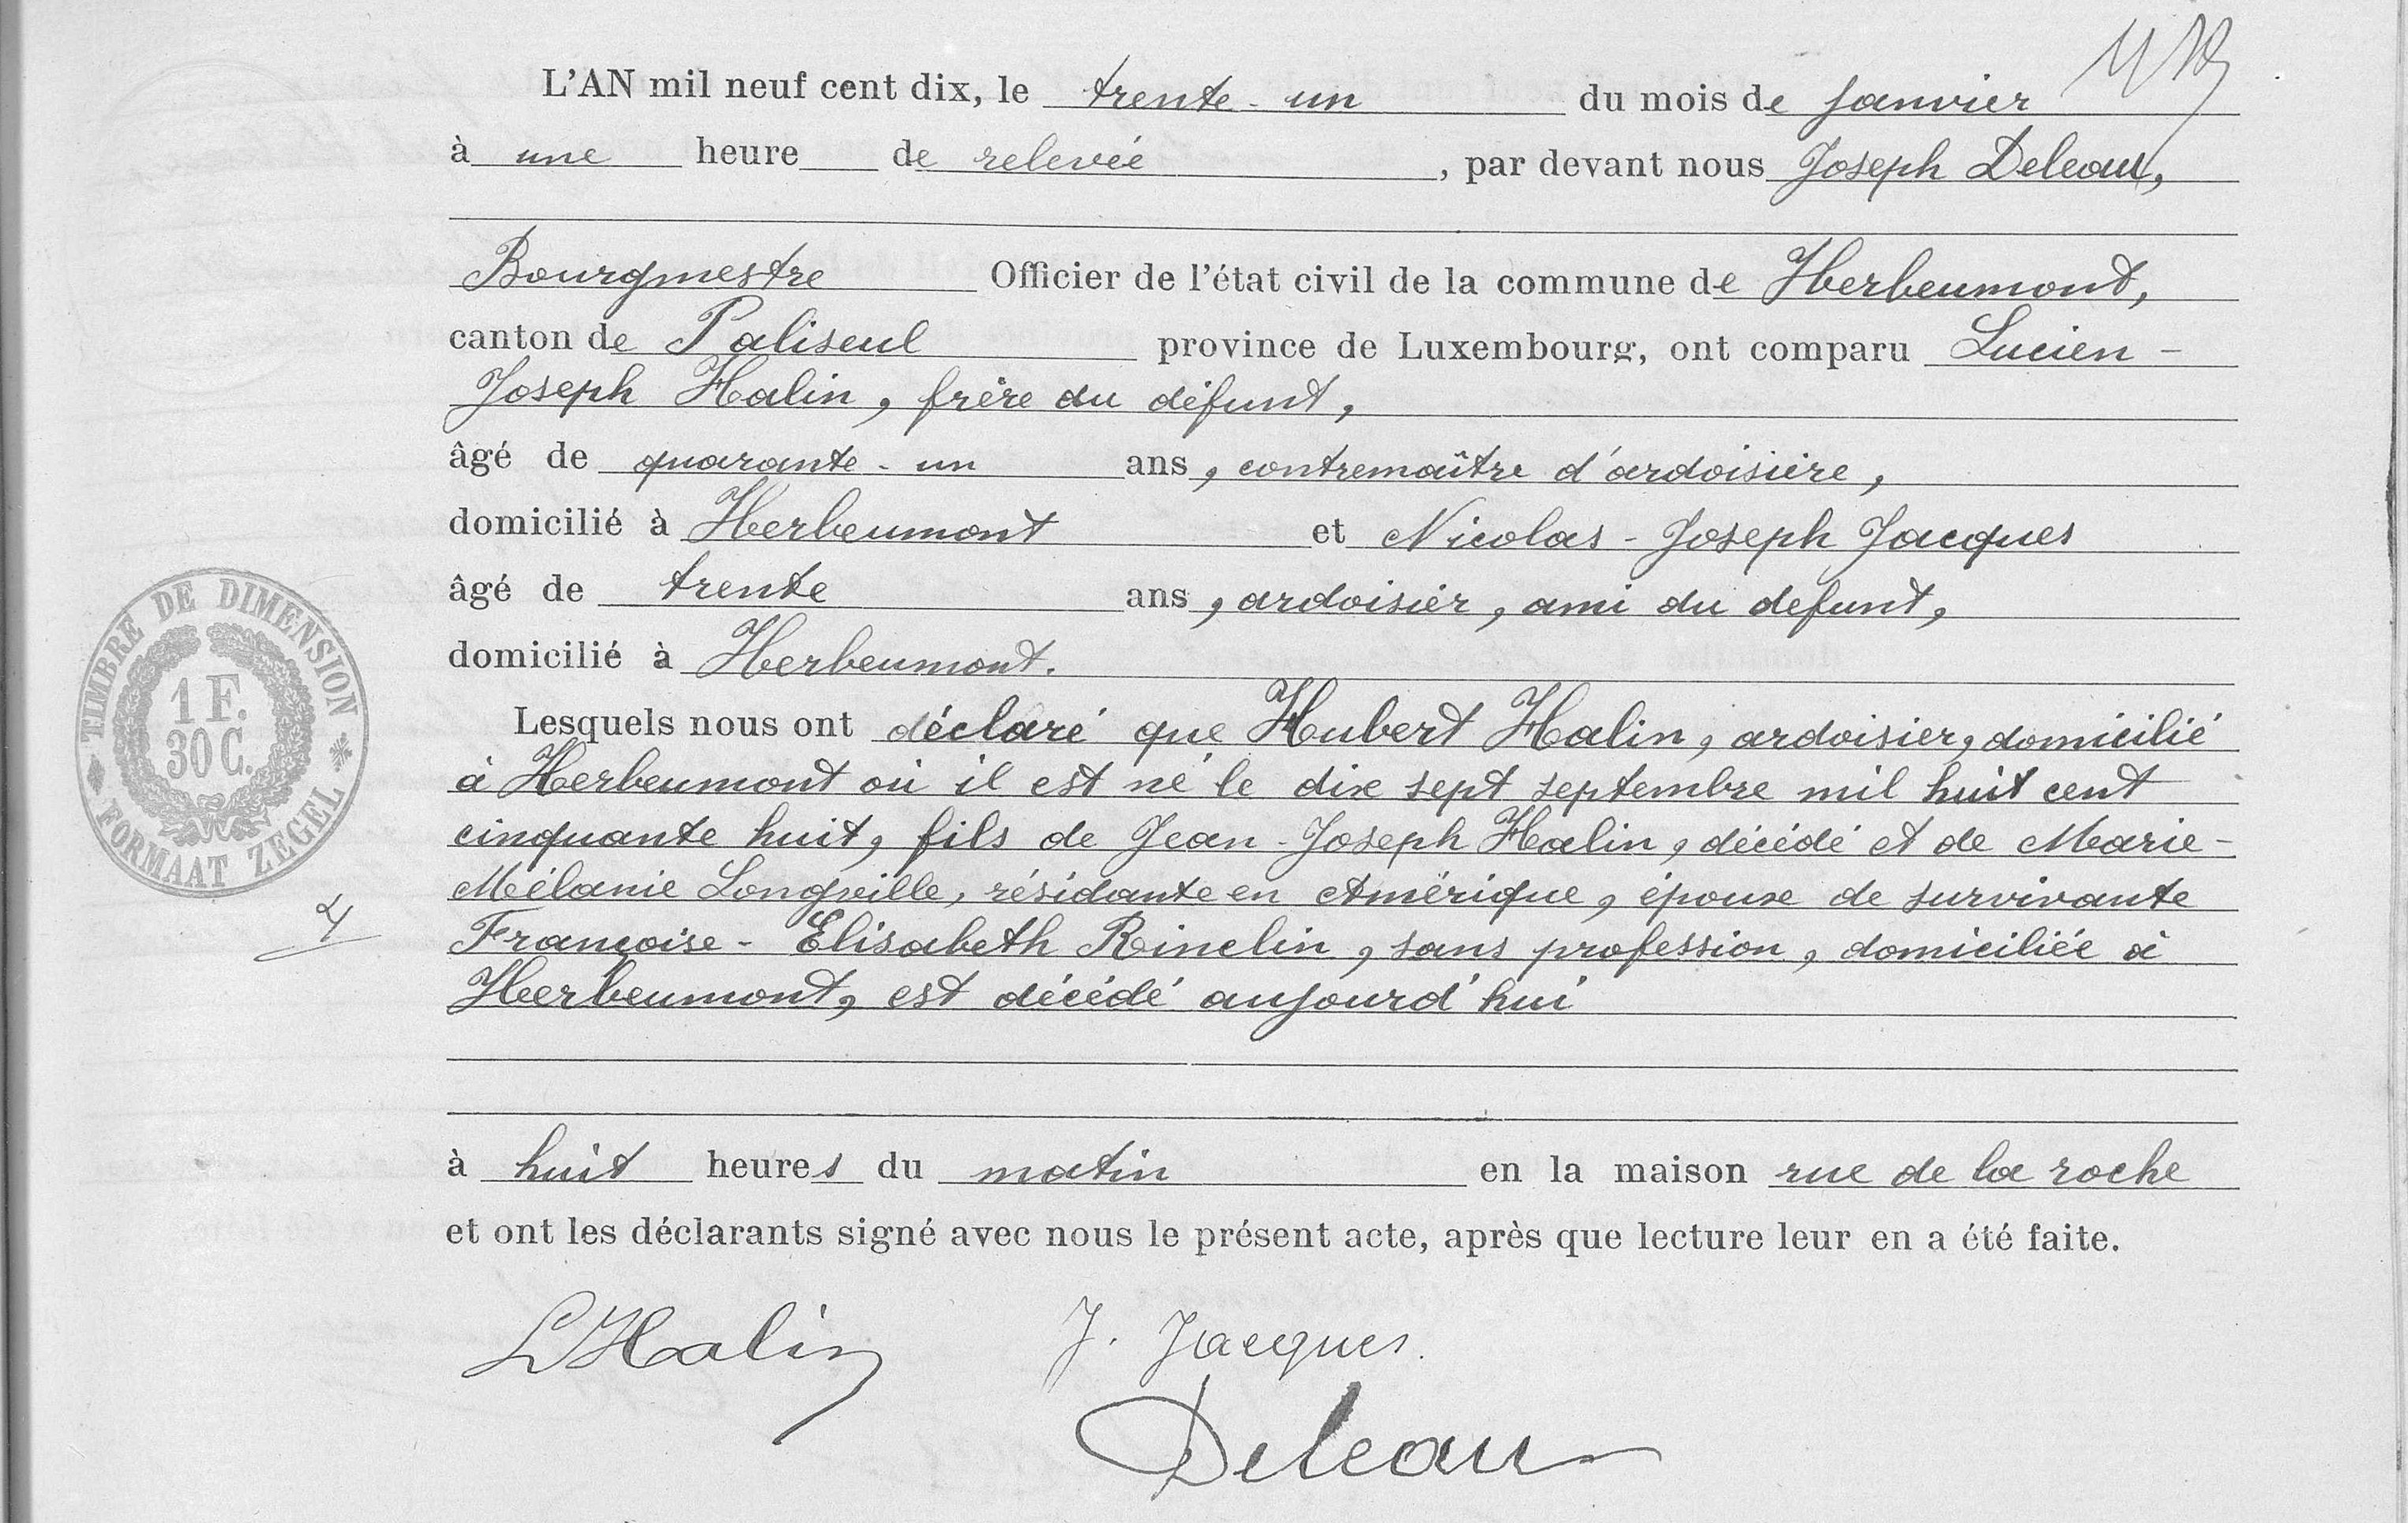 L'AN mil neuf cent dix, le trente-un du mois de janvier
à une heure de relevée, par devant nous Joseph Deleau,
Bourgmestre Officier de l'état civil de la commune de Herbeumont,
canton de Paliseul province de Luxembourg, ont comparu Lucien-
Joseph Halin, frère du défunt,
âgé de quarante-un ans, contremaître d'ardoisière,
domicilié à Herbeumont et Nicolas-Joseph Jacques
âgé de trente ans, ardoisier, ami du defunt,
domicilié à Herbeumont.
Lesquels nous ont déclaré que Hubert Halin, ardoisier, domicilié
à Herbeumont où il est né le dix sept septembre mil huit cent
cinquante huit, fils de Jean-Joseph Halin, décédé et de Marie-
Mélanie Longville, résidante en Amérique, époux de survivante
Françoise-Elisabeth Rinclin, sans profession, domiciliée à
Herbeumont, est décédé aujourd'hui
à huit heures du matin en la maison rue de la roche
et ont les déclarants signé avec nous le présent acte, après que lecture leur en a été faite.
L Halin J. Jacques.
Deleau
TIMBRE DE DIMENSION
1 F.
30 C.
FORMAAT ZEGEL
4